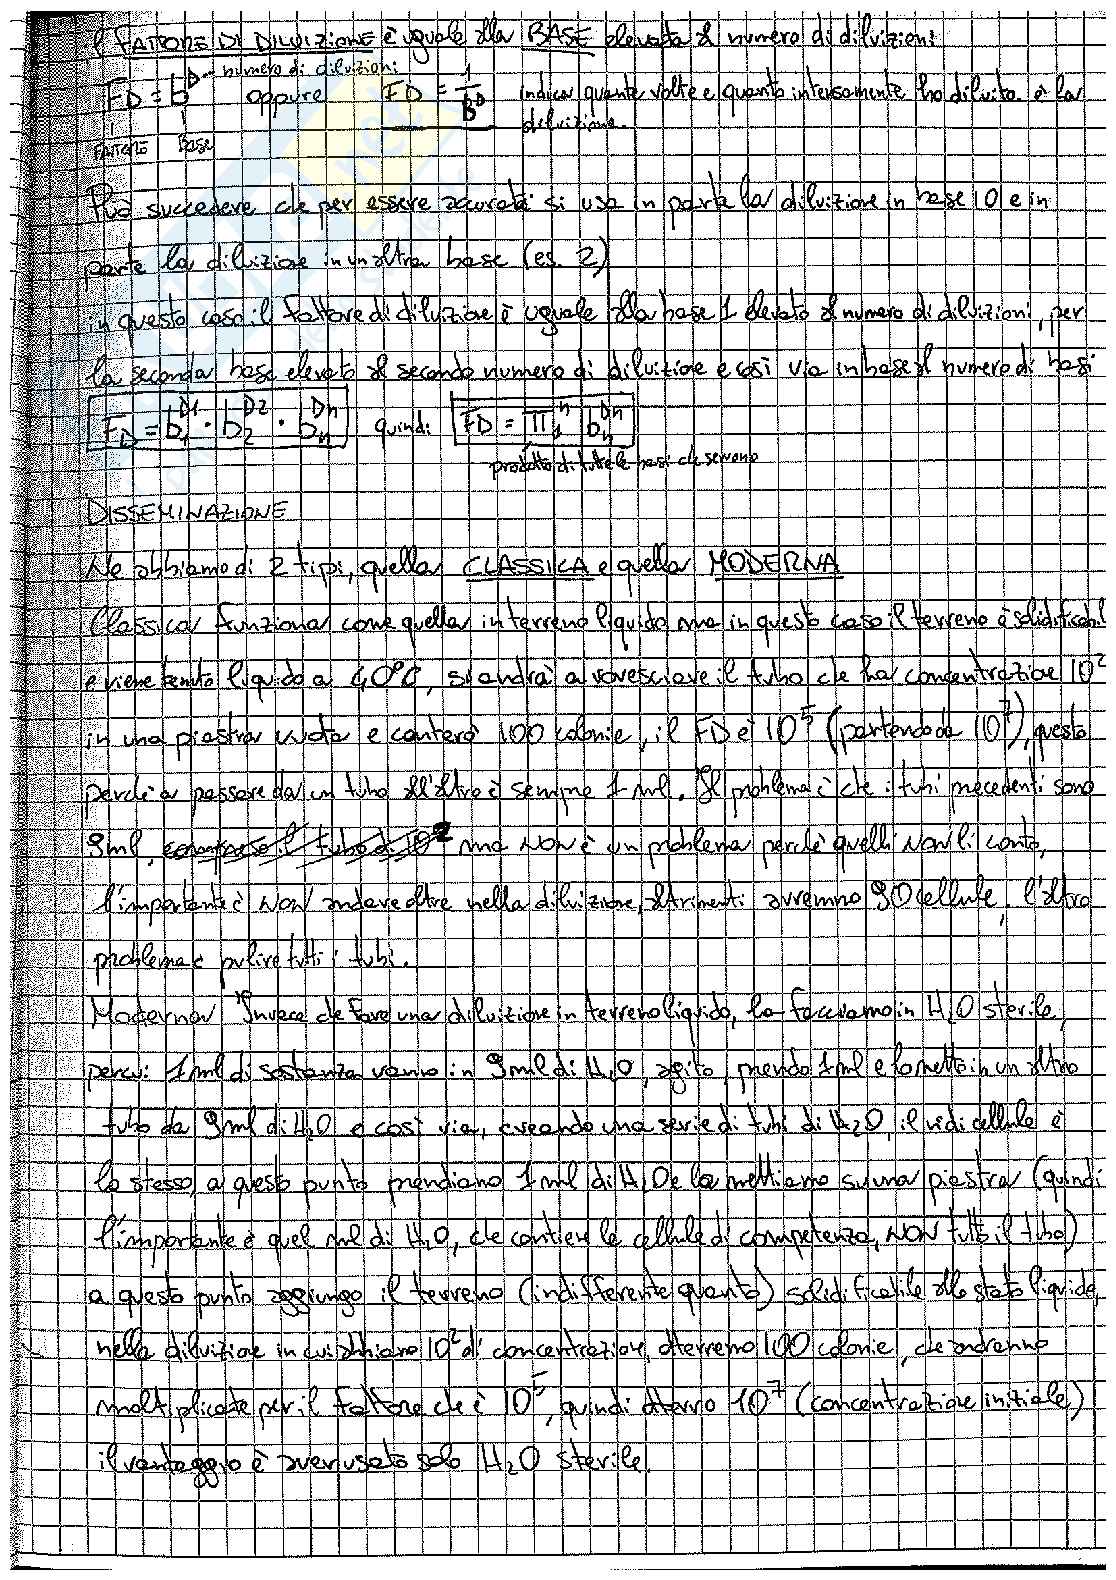 il FATTORE DI DILUIZIONE è uguale alla BASE elevata al numero di diluizioni
FD = b^D numero di diluizioni oppure FD = 1/B^D indica quante volte e quanto intensamente ho diluito. è la
diluizione.
FATTORE Base
Può succedere che per essere accurati si usa in parte la diluizione in base 10 e in
parte la diluizione in un'altra base (es. 2)
in questo caso il fattore di diluizione è uguale alla base 1 elevato al numero di diluizioni, per
la seconda base elevato al secondo numero di diluizione e così via in base al numero di basi
FD = b₁^D1 · b₂^D2 · bₙ^Dn quindi FD = π₁ⁿ bₙ^Dn
prodotto di tutte le basi che servono
DISSEMINAZIONE
Ne abbiamo di 2 tipi, quella CLASSICA e quella MODERNA
Classica funziona come quella in terreno liquido ma in questo caso il terreno è solidificabil
e viene tenuto liquido a 40°C, si andrà a rovesciare il tubo che ha concentrazione 10²
in una piastra vuota e conterò 100 colonie, il FD è 10⁵ (partendo da 10⁷), questo
perchè a passare da un tubo all'altro è sempre 1 ml. Il problema è che i tubi precedenti sono
9ml, il tubo di 10² ma NON è un problema perchè quelli NON li conto,
l'importante è NON andare oltre nella diluizione, altrimenti avremmo 90 cellule, l'altro
problema è pulire tutti i tubi.
Moderna Invece che fare una diluizione in terreno liquido, la facciamo in H₂O sterile,
per cui 1 ml di sostanza vanno in 9ml di H₂O, agito, prendo 1ml e lo metto in un altro
tubo da 9ml di H₂O e così via, creando una serie di tubi di H₂O, il di cellule è
lo stesso, a questo punto prendiamo 1 ml di H₂O e lo mettiamo su una piastra (quindi
l'importante è quel ml di H₂O, che contiene le cellule di competenza, NON tutto il tubo)
a questo punto aggiungo il terreno (indifferente quanto) solidificabile allo stato liquido,
nella diluizione in cui abbiamo 10² di concentrazione, otterremo 100 colonie, che andranno
moltiplicate per il fattore che è 10⁵, quindi otterrò 10⁷ (concentrazione iniziale)
il vantaggio è aver usato solo H₂O sterile.